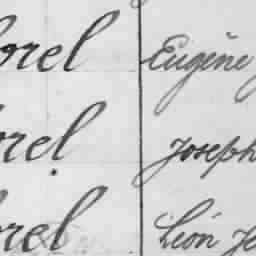 orel Eugène
orel Joseph
orel Léon Je